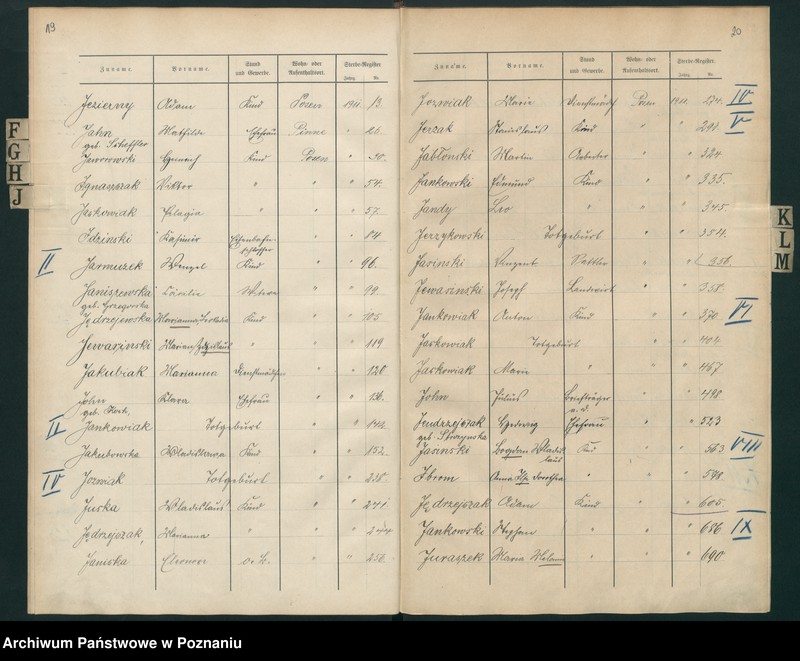 19
Zuname. Vorname. Stand und Gewerbe. Wohn- oder Aufenthaltsort. Sterbe-Register Jahrg. Nr.
Jezierny Adam Kind Posen 1911. 12.
Jahn Mathilde Ehefrau Pinne " 25.
geb. Scheffler
Jaworowski Kind Posen " 30.
Ignaszak Viktor " " " 54.
Jaskowiak Pelagia " " " 57.
Idzinski Kasimir Eisenbahnschlosser " " 84
II Jarmuzek Wenzel Kind " " 96.
Janiszewska Cäcilie Witwe " " 99
geb. Grzegorska
Jędrzejewska Marianna Kind " " 105
Jewasinski Marian " " " 119
Jakubiak Marianna Dienstmädchen " " 120
John Klara Ehefrau " " 136.
geb.
II Jankowiak Totgeburt " " 142.
Jakubowska Wladislawa Kind " " 152.
IV Jozwiak Totgeburt " " 225
Juska Wladislaus Kind " " 241
Jędrzejczak, Marianna " " " 244
Janiska Eleonore o. G. " " 250
F
G
H
J
20
Zuname. Vorname. Stand und Gewerbe. Wohn- oder Aufenthaltsort. Sterbe-Register Jahrg. Nr.
Jozwiak Marie Dienstmädch Posen 1911. 274. IV
Jerzak Stanislaus Kind " " 291 V
Jabłonski Martin Arbeiter " " 324
Jankowski Edmund Kind " " 335.
Jandy Leo " " " 345.
Jerzykowski Totgeburt " " 354.
Jasinski Vinzent Sattler " " 356.
Jewasinski Joseph Landwirt " " 358.
Jankowiak Anton Kind " " 370 VI
Jaskowiak Totgeburt " " 404
Jaskowiak Marie " " " 467
John Julius Briefträger a. D. " " 498
Jendrzejczak Hedwig Ehefrau " " 523
geb.
Jasinski Bogdan Wladislaus Kind " " 563 VIII
Ibrom Anna Dorothea " " " 598
Jędrzejczak Adam Kind " " 605
Jankowski Stephan " " " 686 IX
Juraszek Maria " " " 690
K
L
M
Archiwum Państwowe w Poznaniu